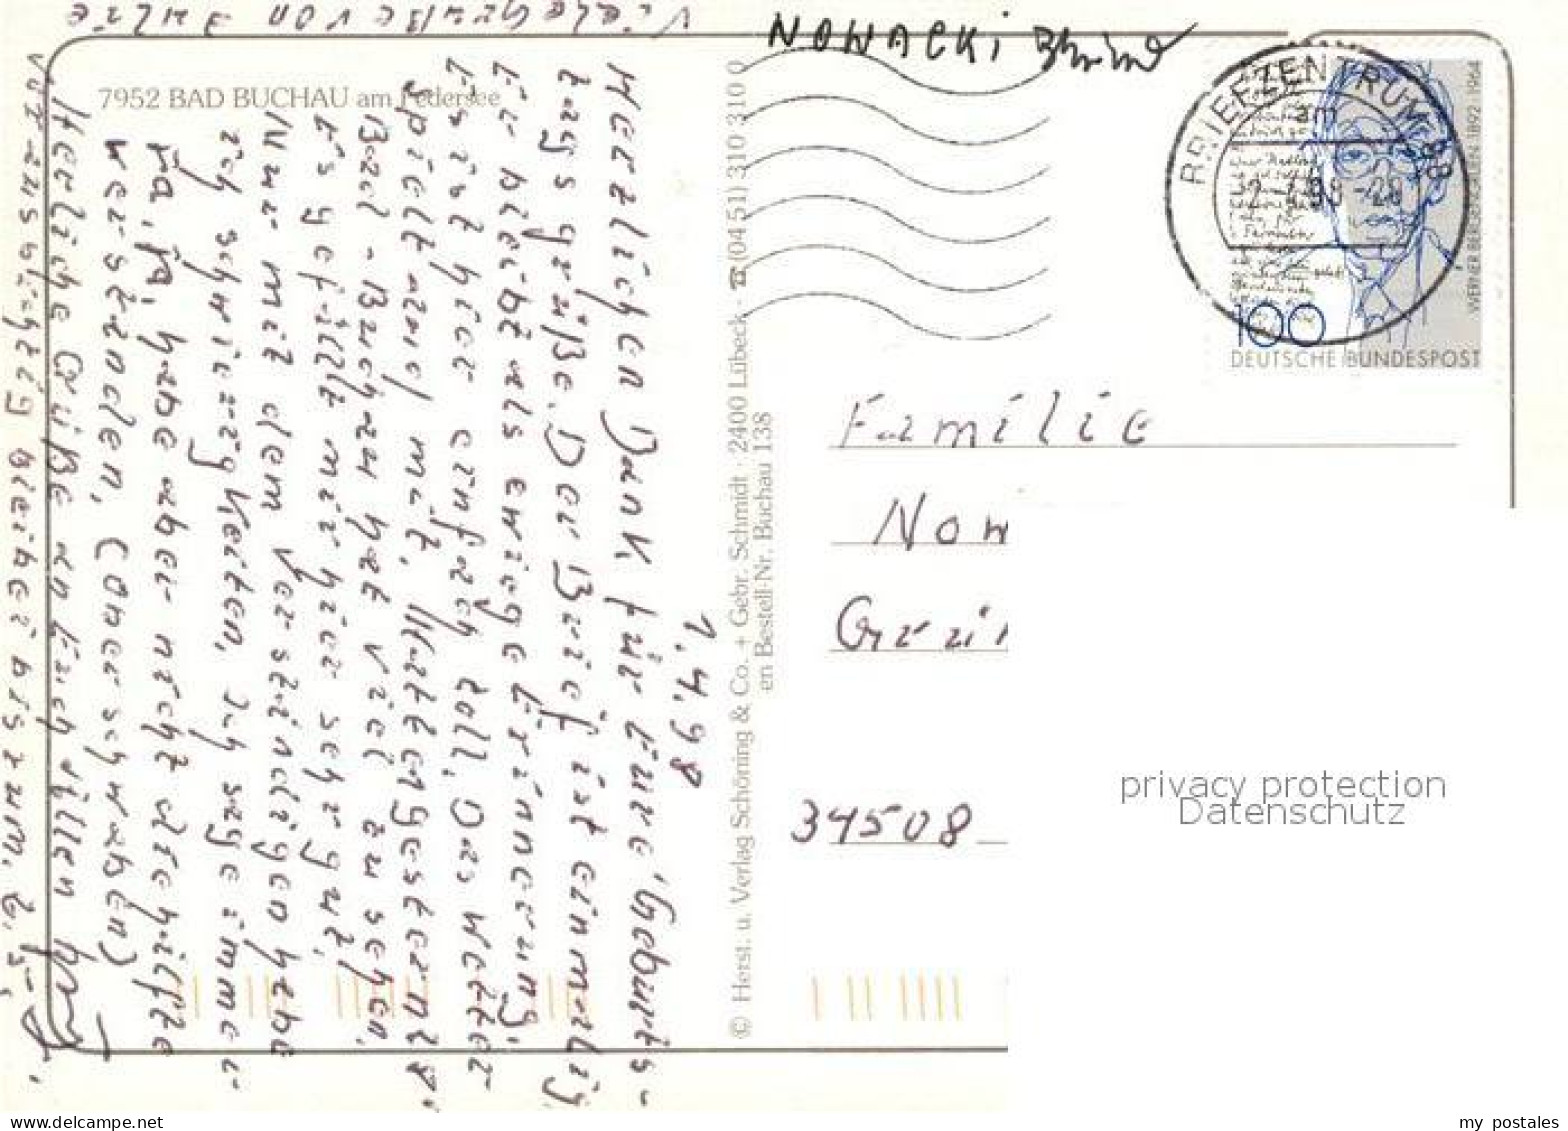 Viele Grüße von Julie
NOWACKI
7952 BAD BUCHAU am Federsee
1.4.98
Herzlichen Dank für Eure Geburts-
tagsgrüße. Der Brief ist einmalig.
Er bleibt als ewige Erinnerung.
Es ist hier einfach toll. Das Wetter
spielt auch mit.
Bad-Buchau hat viel zu sehen.
Es gefällt mir hier sehr gut.
Nur mit dem Verständigen habe
ich schwierigkeiten. Ich sage immer
ja, ja, habe aber nicht die hälfte
verstanden. (Oberschwaben)
Herzliche Grüße an Euch allen
bleibe bis zum
© Herst. u. Verlag Schöning & Co. + Gebr. Schmidt · 2400 Lübeck · ☎ (04 51) 310 310 0
en Bestell-Nr. Buchau 138
BRIEFZENTRUM
am
-2.4.98-20
WERNER BERGENGRUEN 1892-1964
100
DEUTSCHE BUNDESPOST
Familie
Now
34508
privacy protection
Datenschutz
www.delcampe.net
my_postales